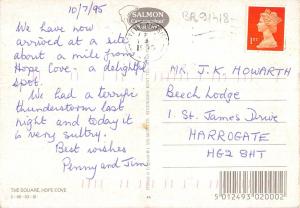 10/7/95
We have now
arrived at a site
about a mile from
Hope Cove, a delightful
spot.
We had a terrific
thunderstorm last
night and today it
is very sultry.
Best wishes
Penny and Jim
THE SQUARE, HOPE COVE
SALMON
1995
1ST
MR. J. K. HOWARTH
Beech Lodge
1 St. James Drive
HARROGATE
HG2 8HT
5 012493 020002